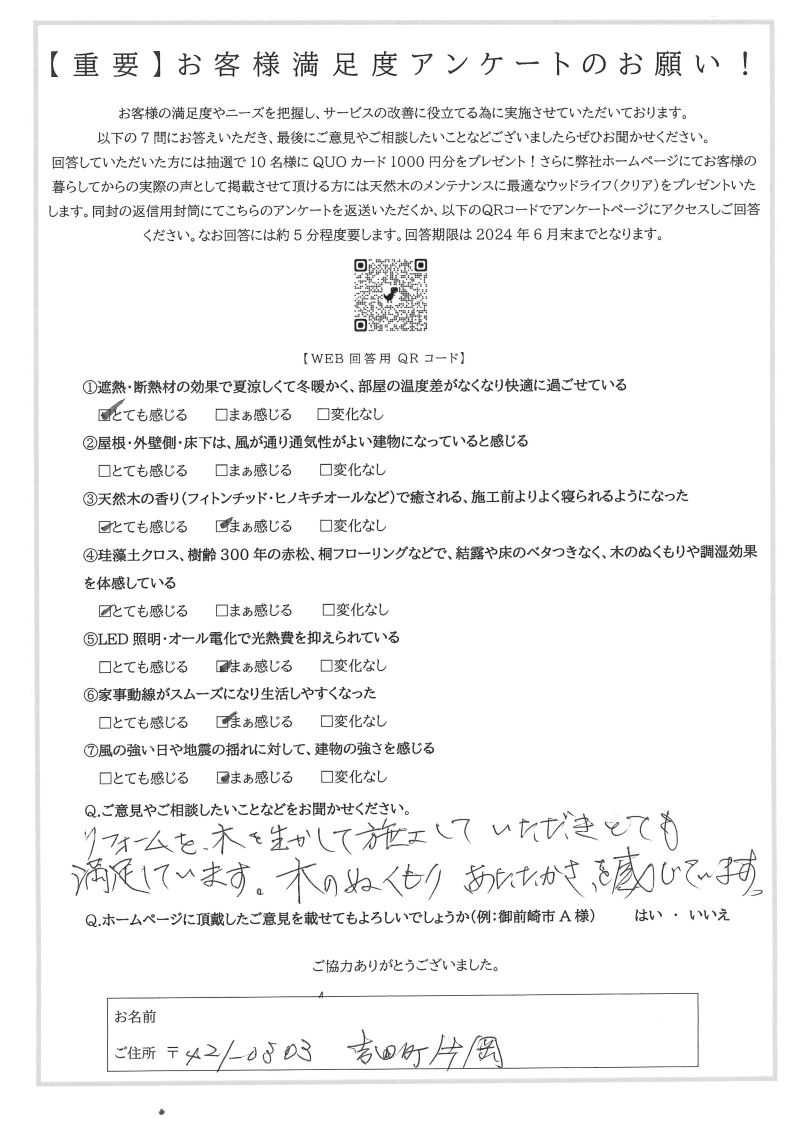 【重要】お客様満足度アンケートのお願い！
お客様の満足度やニーズを把握し、サービスの改善に役立てる為に実施させていただいております。
以下の７問にお答えいただき、最後にご意見やご相談したいことなどございましたらぜひお聞かせください。
回答していただいた方には抽選で10名様にQUOカード1000円分をプレゼント！さらに弊社ホームページにてお客様の
暮らしてからの実際の声として掲載させて頂ける方には天然木のメンテナンスに最適なウッドライフ（クリア）をプレゼントいた
します。同封の返信用封筒にてこちらのアンケートを返送いただくか、以下のQRコードでアンケートページにアクセスしご回答
ください。なお回答には約５分程度要します。回答期限は2024年６月末までとなります。
【WEB回答用QRコード】
①遮熱・断熱材の効果で夏涼しくて冬暖かく、部屋の温度差がなくなり快適に過ごせている
☑とても感じる　□まぁ感じる　□変化なし
②屋根・外壁側・床下は、風が通り通気性がよい建物になっていると感じる
□とても感じる　□まぁ感じる　□変化なし
③天然木の香り（フィトンチッド・ヒノキチオールなど）で癒される、施工前よりよく寝られるようになった
☑とても感じる　☑まぁ感じる　□変化なし
④珪藻土クロス、樹齢300年の赤松、桐フローリングなどで、結露や床のベタつきなく、木のぬくもりや調湿効果
を体感している
☑とても感じる　□まぁ感じる　□変化なし
⑤LED照明・オール電化で光熱費を抑えられている
□とても感じる　☑まぁ感じる　□変化なし
⑥家事動線がスムーズになり生活しやすくなった
□とても感じる　☑まぁ感じる　□変化なし
⑦風の強い日や地震の揺れに対して、建物の強さを感じる
□とても感じる　☑まぁ感じる　□変化なし
Q.ご意見やご相談したいことなどをお聞かせください。
リフォームを、木を生かして施工して いただきとても
満足しています。木のぬくもり あたたかさを感じています。
Q.ホームページに頂戴したご意見を載せてもよろしいでしょうか（例：御前崎市A様）　はい ・ いいえ
ご協力ありがとうございました。
お名前
ご住所 〒421-0303 吉田町片岡